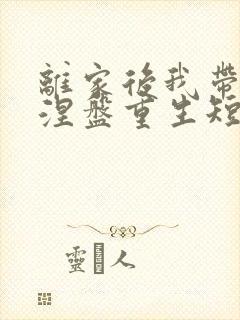 離家後我帶
涅盤重生短
靈 人